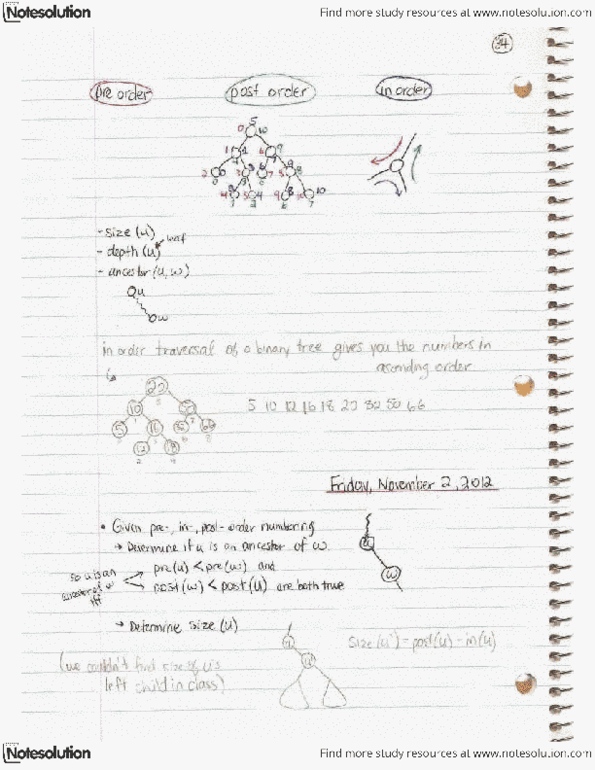 Notesolution
Find more study resources at www.notesolution.com
34
pre order
post order
in order
- size (u)
- depth (u)
leaf
- ancestor (u, w)
u
w
in order traversal of a binary tree gives you the numbers in
ascending order
5 10 12 16 18 20 30 50 66
Friday, November 2, 2012
• Given pre-, in-, post- order numbering
→ Determine if u is an ancestor of w.
so u is an
ancestor of w
iff
pre(u) < pre(w) and
post(w) < post(u) are both true
u
w
→ Determine size (u)
size(u) = post(u) - in(u)
(we couldn't find size of u's
left child in class)
Notesolution
Find more study resources at www.notesolution.com